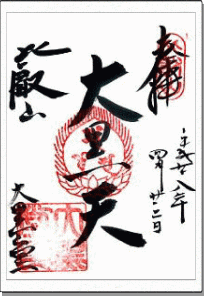 奉拝
平成廿八年
四月廿二日
大黒天
比叡山
大黒堂